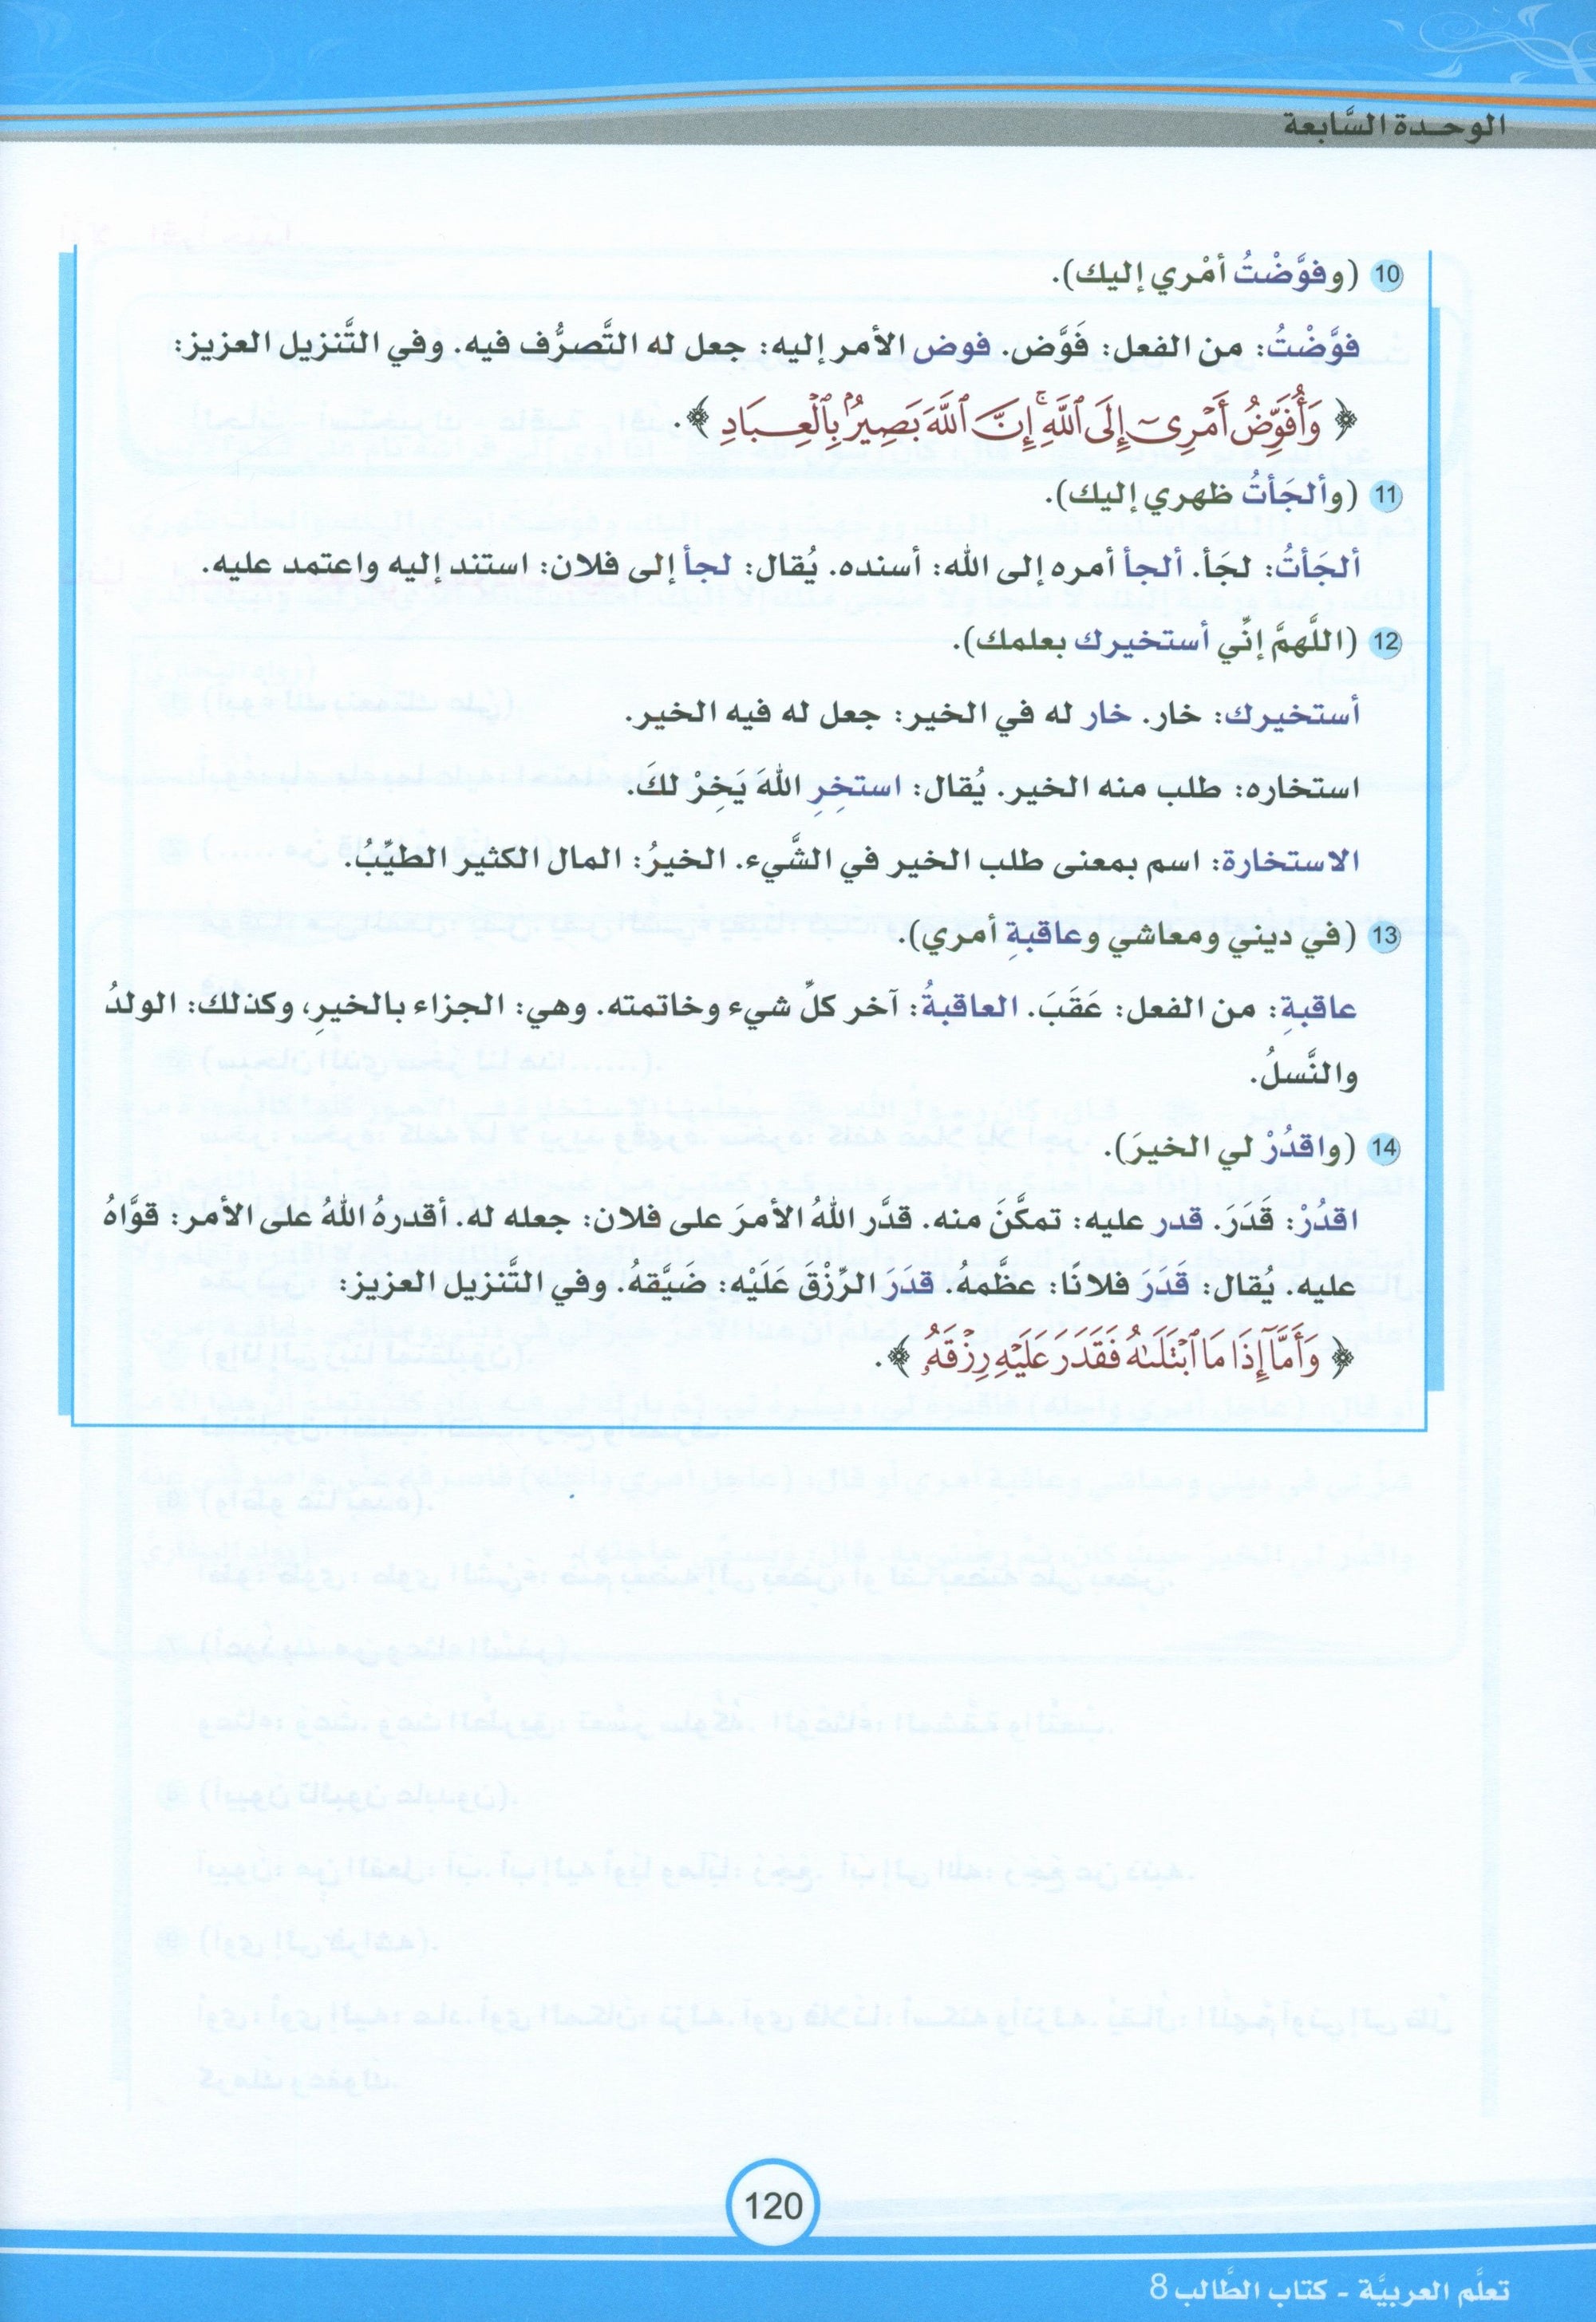 الوحـدة السَّابعة
10 (وفوَّضْتُ أمْري إليك).
فوَّضْتُ: من الفعل: فَوَّض. فوض الأمر إليه: جعل له التَّصرُّف فيه. وفي التَّنزيل العزيز:
﴿ وَأُفَوِّضُ أَمْرِىٓ إِلَى ٱللَّهِۚ إِنَّ ٱللَّهَ بَصِيرٌۢ بِٱلْعِبَادِ ﴾.
11 (وألجَأتُ ظهري إليك).
ألجَأتُ: لجَأ. ألجأ أمره إلى الله: أسنده. يُقال: لجأ إلى فلان: استند إليه واعتمد عليه.
12 (اللَّهمَّ إنِّي أستخيرك بعلمك).
أستخيرك: خار. خار له في الخير: جعل له فيه الخير.
استخاره: طلب منه الخير. يُقال: استخِرِ اللهَ يَخِرْ لكَ.
الاستخارة: اسم بمعنى طلب الخير في الشَّيء. الخيرُ: المال الكثير الطيِّبُ.
13 (في ديني ومعاشي وعاقبةِ أمري).
عاقبةِ: من الفعل: عَقَبَ. العاقبةُ: آخر كلِّ شيء وخاتمته. وهي: الجزاء بالخيرِ، وكذلك: الولدُ
والنَّسلُ.
14 (واقدُرْ لي الخيرَ).
اقدُرْ: قَدَرَ. قدر عليه: تمكَّنَ منه. قدَّر اللهُ الأمرَ على فلان: جعله له. أقدرهُ اللهُ على الأمر: قوَّاهُ
عليه. يُقال: قَدَرَ فلانًا: عظَّمهُ. قدَرَ الرِّزْقَ عَلَيْه: ضَيَّقهُ. وفي التَّنزيل العزيز:
﴿ وَأَمَّآ إِذَا مَا ٱبْتَلَىٰهُ فَقَدَرَ عَلَيْهِ رِزْقَهُۥ ﴾.
120
تعلَّم العربيَّة - كتاب الطَّالب 8